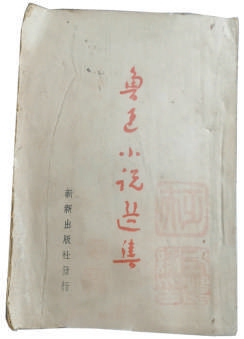 鲁迅小说选集
新新出版社发行